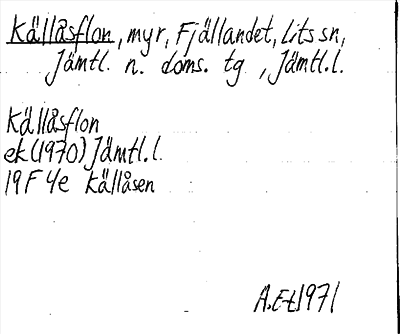 Källåsflon, myr, Fjällandet, Lits sn,
Jämtl. n. doms. tg, Jämtl.l.
Källåsflon
ek (1970) Jämtl.l.
19 F 4e Källåsen
A.E-t 1971